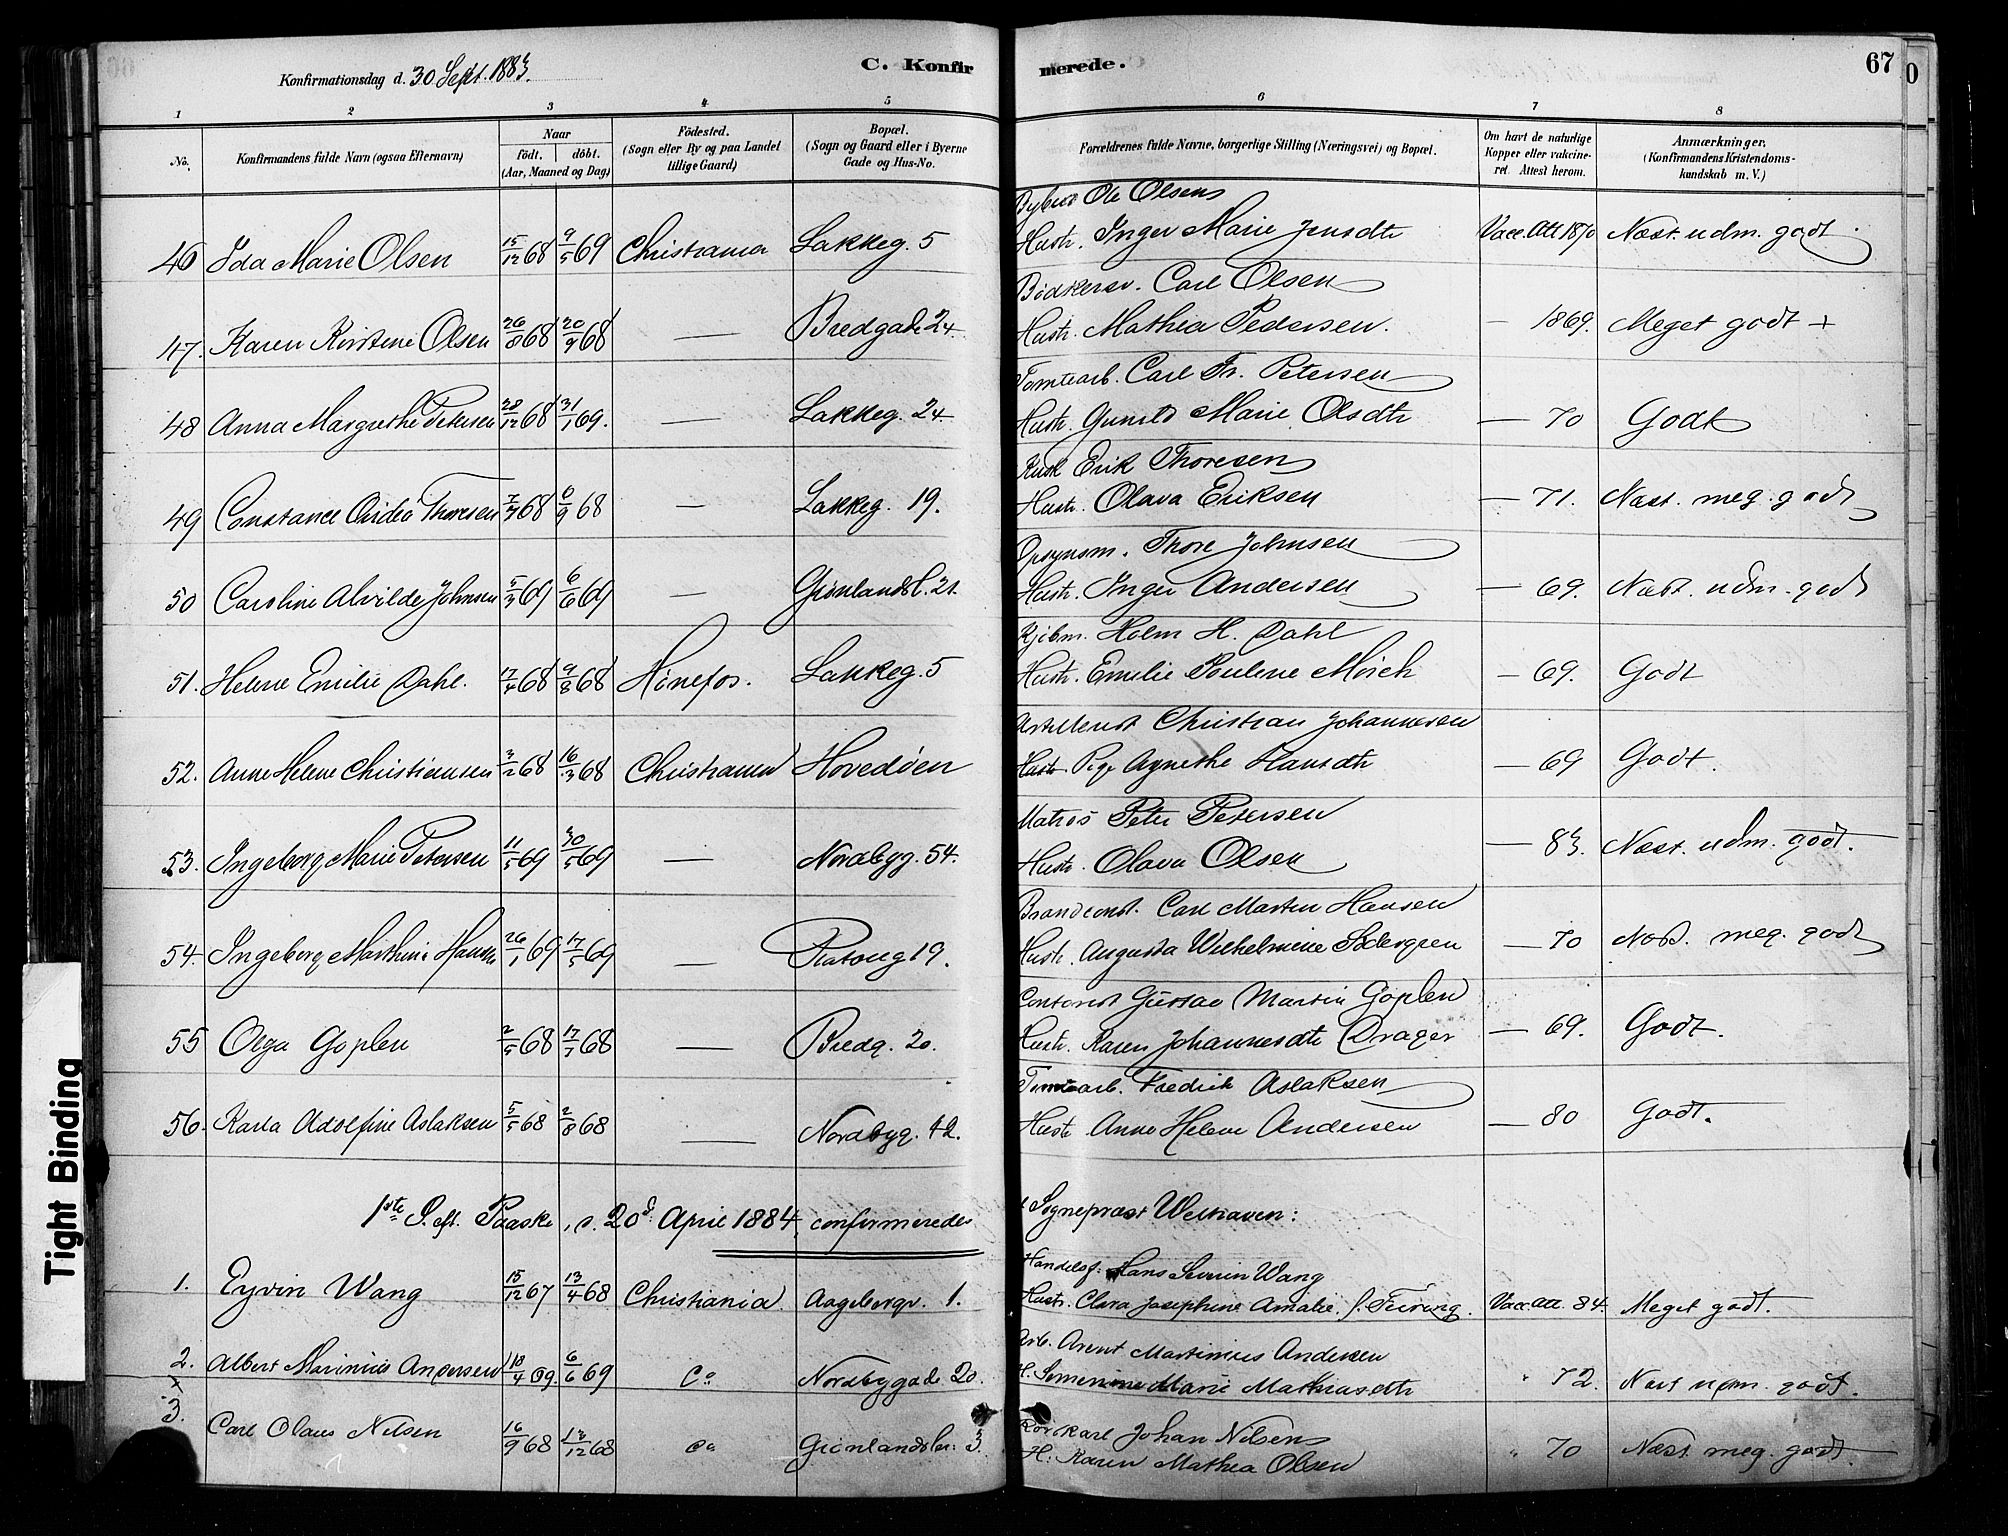 Konfirmationsdag d. 30 Sept. 1883.
C. Konfir merede. 67
1 2 3 4 5 6 7 8
No.
Konfirmandens fulde Navn (ogsaa Efternavn)
Naar
født. døbt.
(Aar, Maaned og Dag)
Fødested.
(Sogn eller By og paa Landet
tillige Gaard)
Bopæl.
(Sogn og Gaard eller i Byerne
Gade og Hus-No.
Forældrenes fulde Navne, borgerlige Stilling (Næringsvei) og Bopæl.
Om havt de naturlige
Kopper eller vakcine-
ret. Attest herom.
Anmærkninger.
(Konfirmandens Kristendoms-
kundskab m. V.)
Ole Olsen
46 Ida Marie Olsen 15/12 68 9/5 69 Christiania Lakkeg. 5 Hustr. Inger Marie Jensdtr Vacc. Att 1870 Næst. udm. godt.
Bødkersv. Carl Olsen
47. Karen Kirstine Olsen 26/8 68 20/9 68 — Bredgade 24 Hustr. Mathea Pedersen. — 1869. Meget godt +
Tomtearb. Carl Fr. Petersen
48 Anna Margrethe Petersen 28/12 68 31/1 69. — Lakkeg. 24 Hustr. Gunild Marie Olsdtr — 70 Godt
Kusk Erik Thoresen
49 Constance Thoresen 7/7 68 6/9 68 — Lakkeg. 19. Hustr. Olava Eriksen — 71. Næst. meg. godt
Opsynsm. Thore Johnsen
50 Caroline Alvilde Johnsen 5/3 69 6/6 69 — Grønlandsl. 21. Hustr. Inger Andersen — 69. Næst. udm. godt
Kjøbm. Holm H. Dahl
51. Helene Emilie Dahl. 17/4 68 9/8 68 Hønefos. Lakkeg. 5 Hustr. Emilie Pauline Mørch — 69. Godt
Artillerist Christian Johannesen
52. Anne Helene Christiansen 3/2 68 16/3 68 Christiania Hovedøen Hustr. Pige Agnethe Hansdtr — 69 Godt.
Matros Peter Petersen
53. Ingeborg Marie Petersen 11/5 69 30/5 69 — Nordbyg. 54. Hustr. Olava Olsen — 83. Næst. udm. godt.
Brandconst. Carl Martin Hansen
54. Ingeborg Marthine Hansen 26/1 69 17/5 69 — Platoug 19. Hustr. Augusta Wilhelmine Södergren — 70 Næst. meg. godt
Contorist Gustav Martin Goplen
55 Olga Goplen 2/5 68 17/7 68 — Bredg. 20. Hustr. Karen Johannesdtr Drager — 69. Godt.
Tomtearb. Fredrik Aslaksen
56. Karla Adolfine Aslaksen 5/5 68 2/8 68 — Nordbyg. 42. Hustr Anne Helene Andersen — 80 Godt.
1ste S. eft. Paaske, d. 20d April 1884, confirmeredes Sognepræst Welhaven:
Handelsf. Hans Severin Wang
1. Eyvin Wang 15/12 67 13/4 68 Christiania Aagebergv. 1. Hustr. Clara Josephine Amalie f. Feiring. Vacc. Att. 84. Meget godt.
Arb. Arent Martinius Andersen
2. Albert Marinius Andersen 18/4 69. 6/6 69 Co Nordbygade 20. H. Marie Mathiasdtr " 72. Næst udm. godt.
+
3. Carl Olaus Nilsen 16/9 68 13/12 68 Co Grønlandsler. 3. Rørskarl Johan Nilsen
H. Karen Mathea Olsen " 70 Næst. meg. godt.
Tight Binding